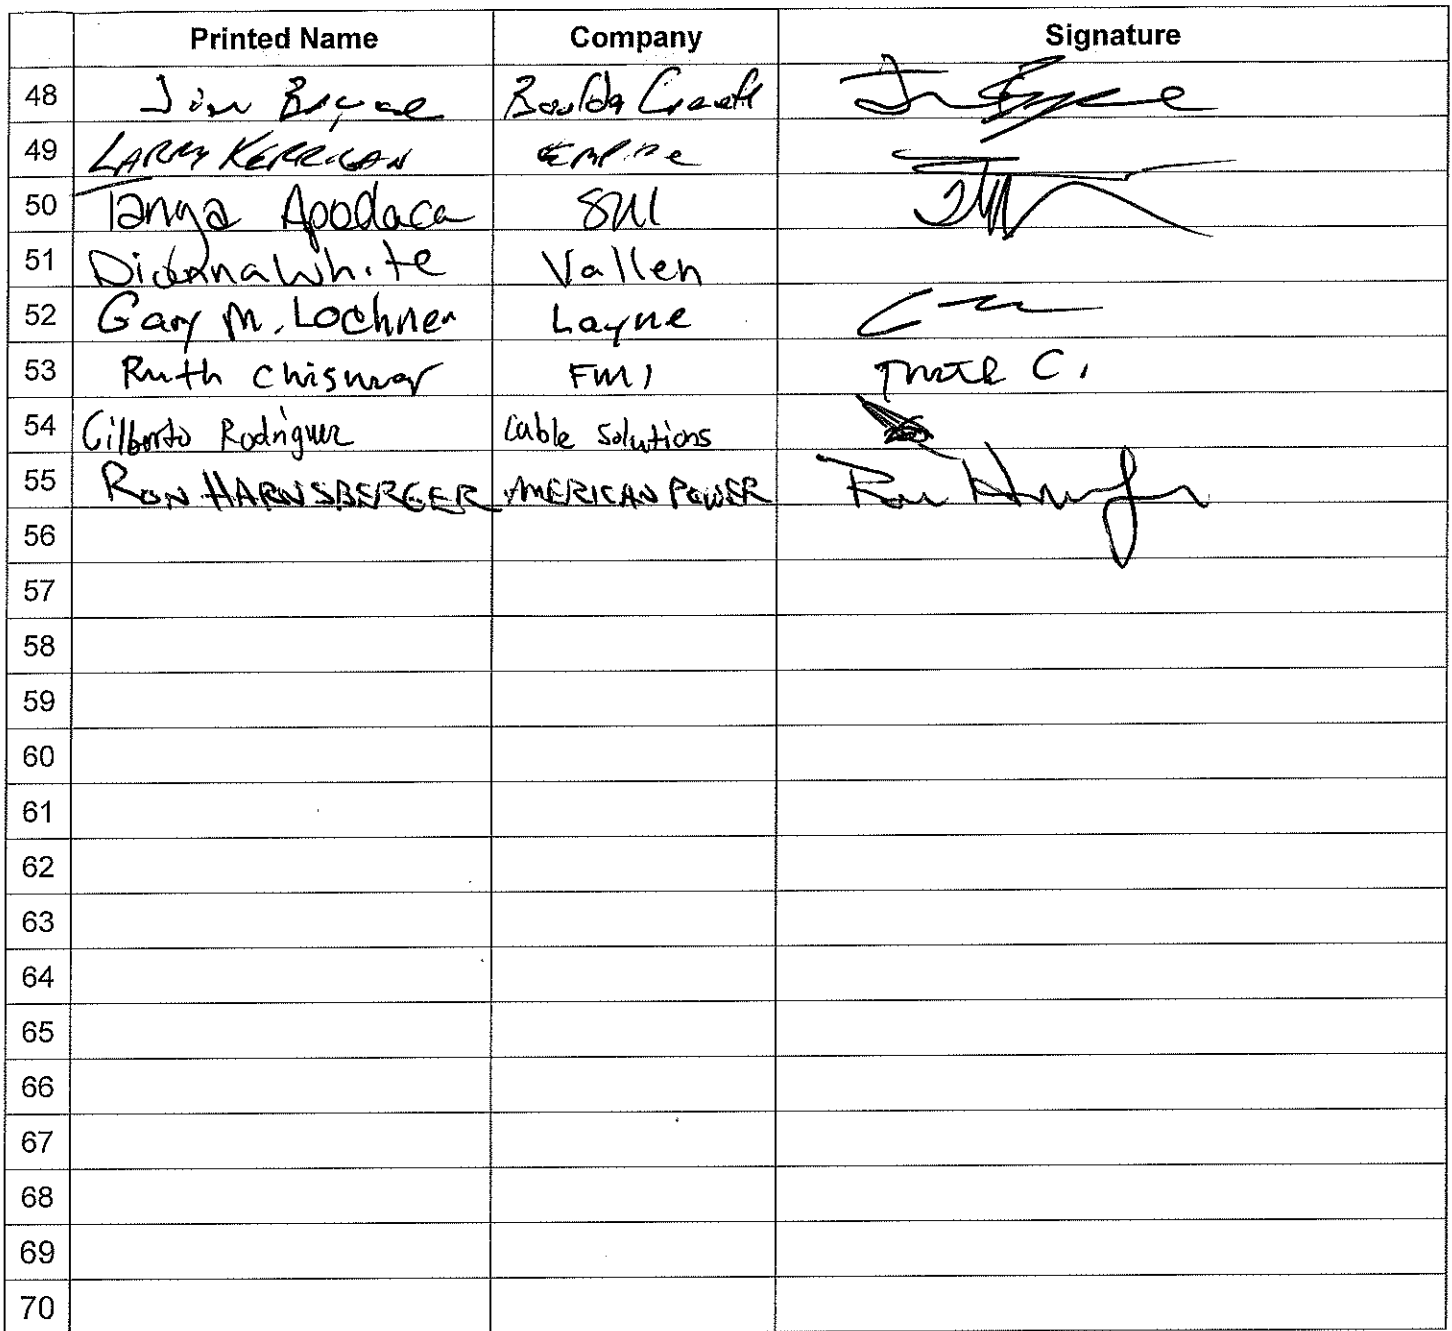 Printed Name Company Signature
48 Jim Byrne
49 LARRY KERRIGAN EMPIRE
50 Tanya Apodaca
51 Dideanna White Vallen
52 Gary M. Lochner Layne
53 Ruth FMI C.
54 Gilberto Rodriguez Cable Solutions
55 RON HARNSBERGER AMERICAN POWER Ron
56
57
58
59
60
61
62
63
64
65
66
67
68
69
70